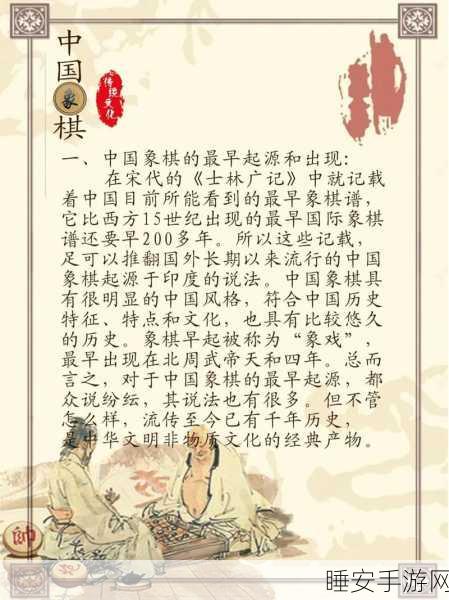 中国象棋
传统文化
一、中国象棋的最早起源和出现：
在宋代的《士林广记》中就记载
着中国目前所能看到的最早象棋谱，
它比西方15世纪出现的最早国际象棋
谱还要早200多年。所以这些记载，
足可以推翻国外长期以来流行的中国
象棋起源于印度的说法。中国象棋具
有很明显的中国风格，符合中国历史
特征、特点和文化，也具有比较悠久
的历史。象棋早起被称为“象戏”，
最早出现在北周武帝天和四年。总而
言之，对于中国象棋的最早起源，都
众说纷纭，其说法也有很多。但不管
怎么样，流传至今已有千年历史，
是中华文明非物质文化的经典产物。
帥
睡安手游网